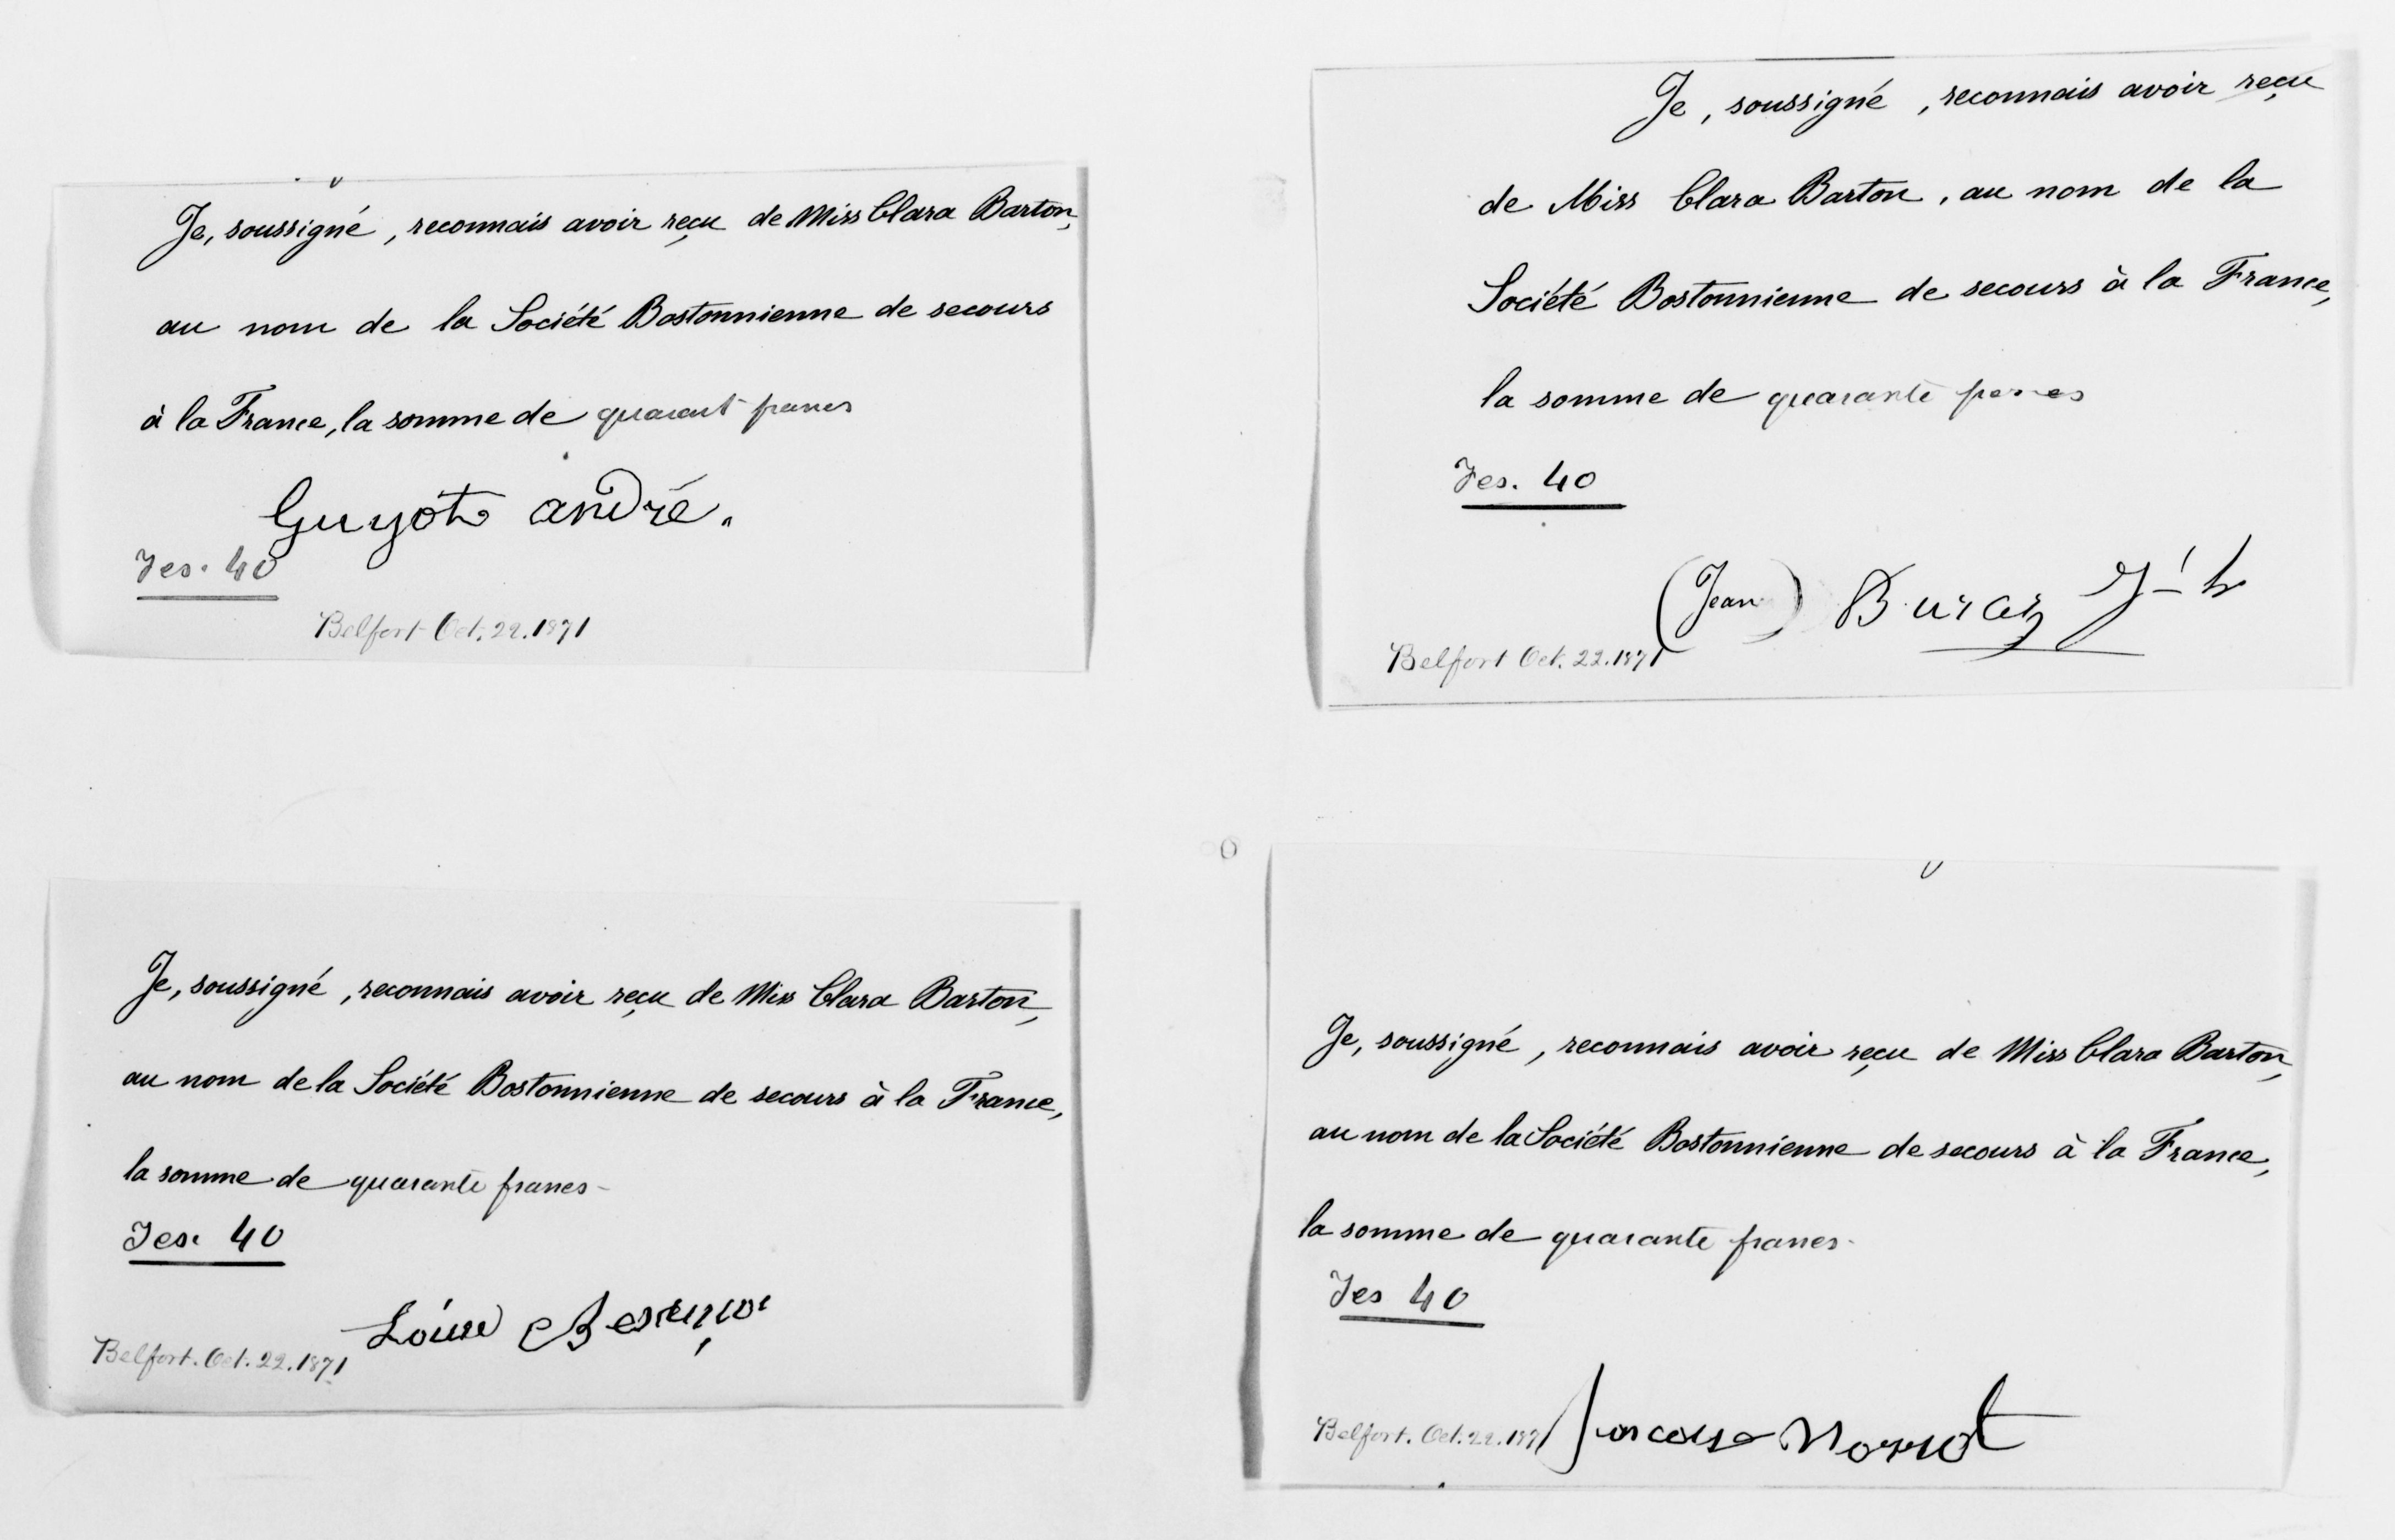 Je, soussigné, reconnais avoir reçu de Miss Clara Barton,
au nom de la Société Bostonnienne de secours
à la France, la somme de quarant francs
Guyot andré.
Fcs. 40
Belfort Oct. 22. 1871
Je, soussigné, reconnais avoir reçu
de Miss Clara Barton, au nom de la
Société Bostonnienne de secours à la France,
la somme de quarante francs
Fcs. 40
(Jean)
Belfort Oct. 22. 1871
Je, soussigné, reconnais avoir reçu de Miss Clara Barton,
au nom de la Société Bostonnienne de secours à la France,
la somme de quarante francs
Fcs. 40
Belfort. Oct. 22. 1871
Je, soussigné, reconnais avoir reçu de Miss Clara Barton,
au nom de la Société Bostonnienne de secours à la France,
la somme de quarante francs
Fcs 40
Belfort. Oct. 22. 1871